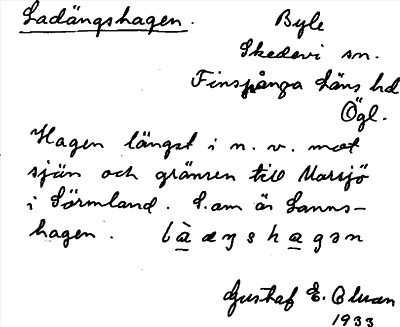 Ladängshagen. Byle
Skedevi sn.
Finspånga läns hd
Ögl.
Hagen längst i n. v. mot
sjön och gränsen till Marsjö
i Sörmland. S.am är Lanns-
hagen. làæŋshagən
Gustaf E. Oluan
1933